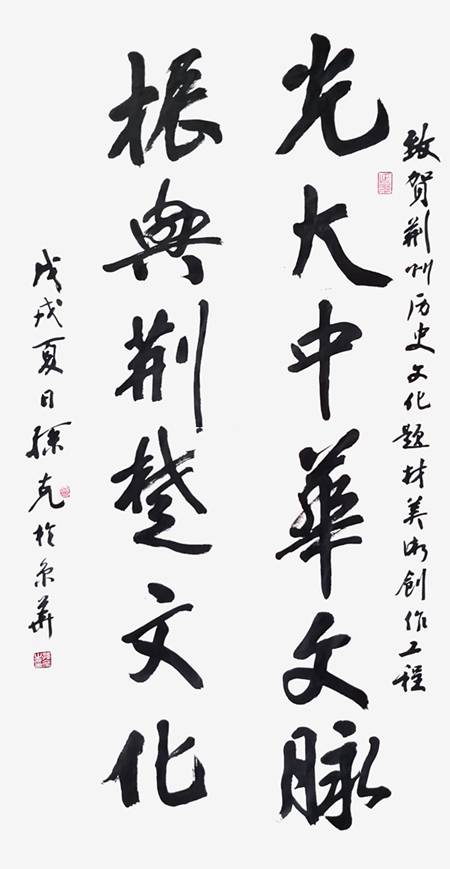 致賀荆州历史文化題材美術創作工程
光大中華文脉
振興荆楚文化
戊戌夏日孫克於京華